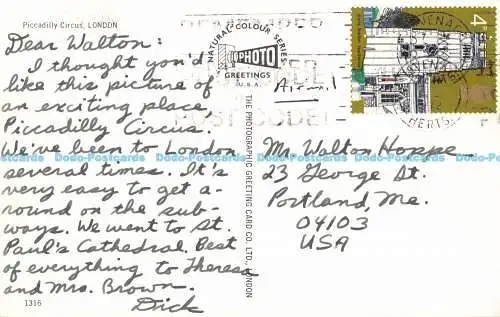 Piccadilly Circus, LONDON
Dear Walton:
I thought you'd
like this picture of
an exciting place,
Piccadilly Circus.
We've been to London
several times. It's
very easy to get a-
round on the sub-
ways. We went to St.
Paul's Cathedral. Best
of everything to Theresa
and Mrs. Brown.
Dick
1316
NATURAL COLOUR SERIES
PHOTO
GREETINGS
THE PHOTOGRAPHIC GREETING CARD CO. LTD., LONDON
POSTCODE
Air mail
4P
HERTS
Mr. Walton Hoppe
23 George St.
Portland, Me.
04103
USA
Dodo-Postcards Dodo-Postcards Dodo-Postcards Dodo-Postcards Dodo-Postcards